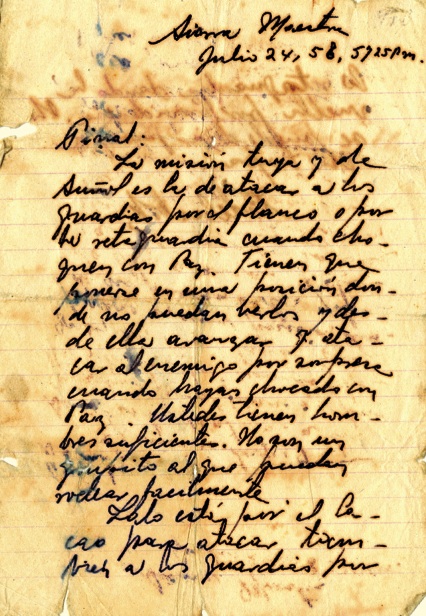 Sierra Maestra
Julio 24, 58, 5 y 25 P.m.
Pinal:
La misión tuya y de
Suñol es la de atacar a los
guardias por el flanco o por
la retaguardia cuando cho-
quen con Paz. Tienen que
ponerse en una posición don-
de no puedan verlos y des-
de ella avanzar y ata-
car al enemigo por sorpresa
cuando hayas chocado con
Paz. Ustedes tienen hom-
bres suficientes. No son un
grupito al que puedan
rodear facilmente
Lalo está por el Ca-
cao para atacar tam-
bien a los guardias por